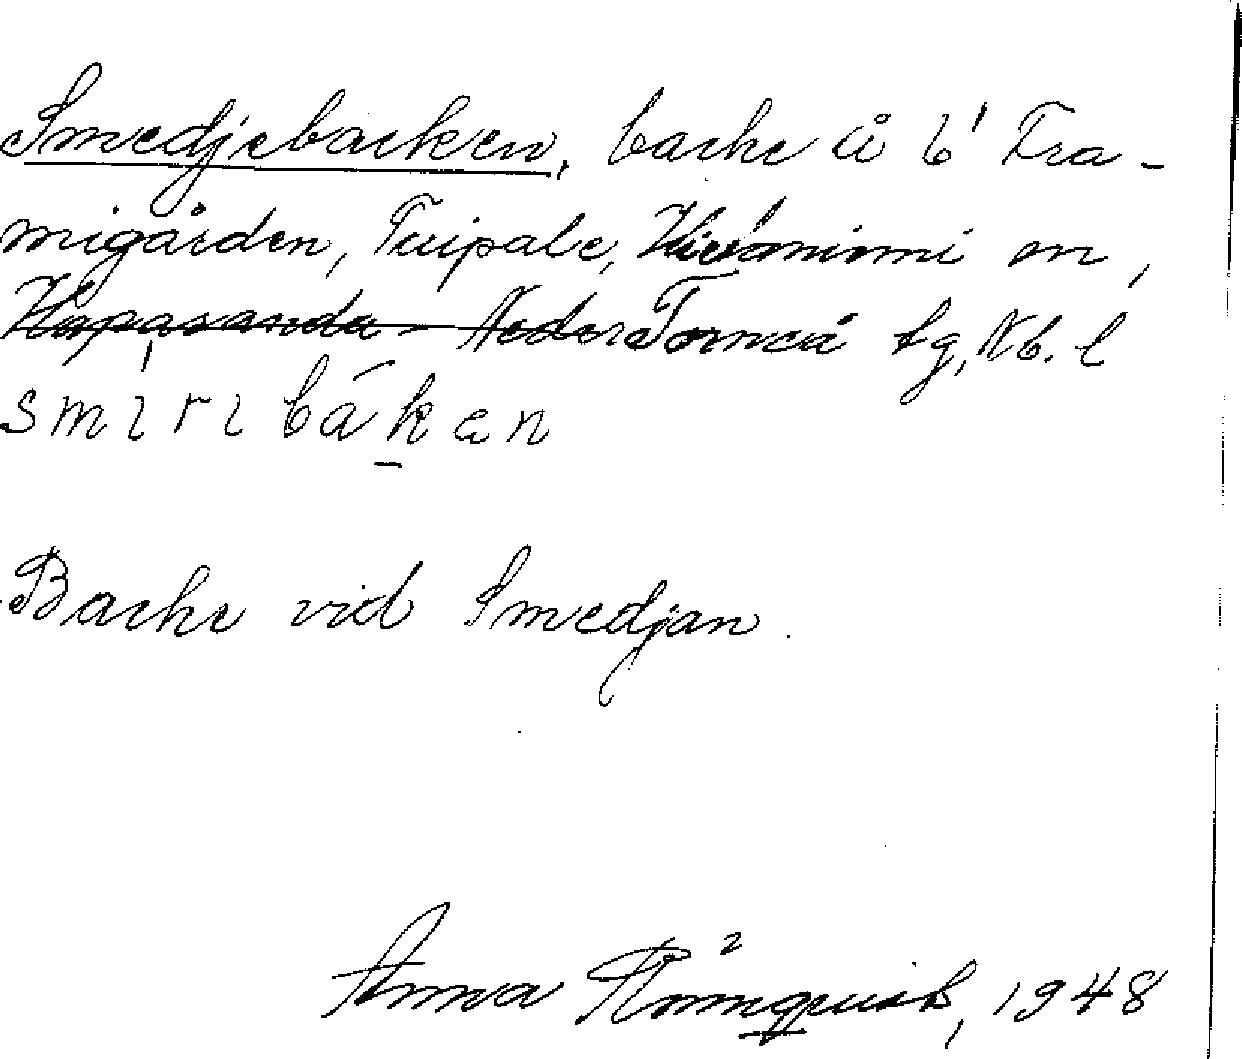 Smedjebacken, backe å 6¹ Fra-
migården, Tuipale, Hieronimi m,
Haparanda - Neder Torneå tg, Nb. l
smiribāken
Backe vid Smedjan.
Anna Rönnquist, 1948